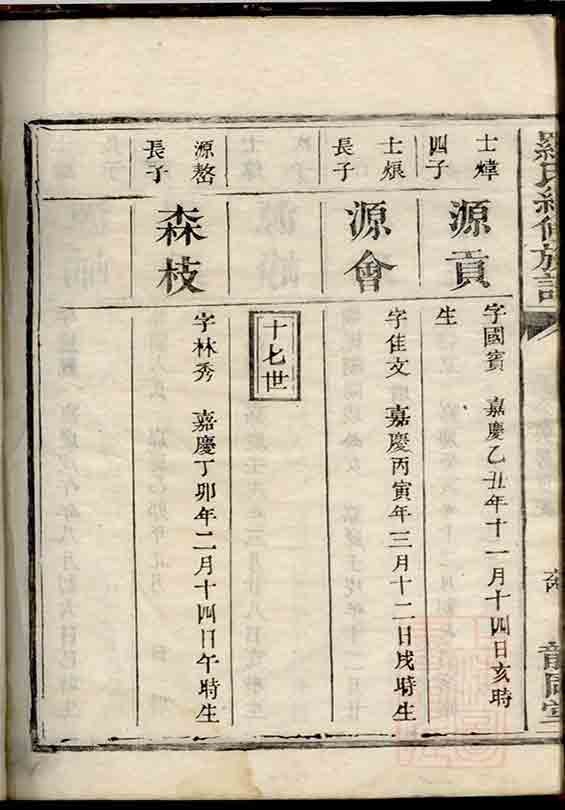 羅氏續修族譜
士煒
四子
源貢
字國賓 嘉慶乙丑年十一月十四日亥時
生
士烺
長子
源會
字佳文 嘉慶丙寅年三月十二日戌時生
十七世
源嶅
長子
森枝
字林秀 嘉慶丁卯年二月十四日午時生